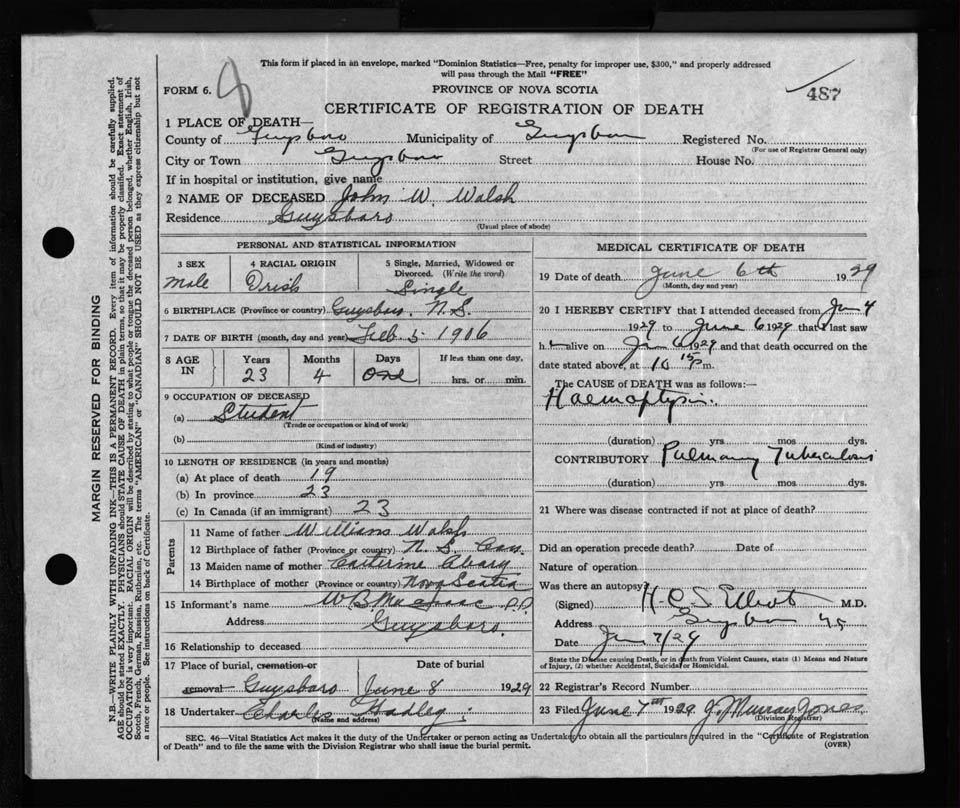 This form if placed in an envelope, marked "Dominion Statistics—Free, penalty for improper use, $300," and properly addressed
will pass through the Mail "FREE"
FORM 6.
PROVINCE OF NOVA SCOTIA
487
CERTIFICATE OF REGISTRATION OF DEATH
1 PLACE OF DEATH—
County of Guysboro Municipality of Guysboro Registered No.
(For use of Registrar General only)
City or Town Guysboro Street House No.
If in hospital or institution, give name
2 NAME OF DECEASED John W. Walsh
Residence Guysboro
(Usual place of abode)
PERSONAL AND STATISTICAL INFORMATION
3 SEX 4 RACIAL ORIGIN 5 Single, Married, Widowed or
Divorced. (Write the word)
Male Irish Single
6 BIRTHPLACE (Province or country) Guysboro, N.S.
7 DATE OF BIRTH (month, day and year) Feb. 5 1906
8 AGE IN Years Months Days If less than one day,
23 4 One hrs. or min.
9 OCCUPATION OF DECEASED
(a) Student
(Trade or occupation or kind of work)
(b)
(Kind of industry)
10 LENGTH OF RESIDENCE (in years and months)
(a) At place of death 19
(b) In province 23
(c) In Canada (if an immigrant) 23
Parents
11 Name of father William Walsh
12 Birthplace of father (Province or country) N. S. Can.
13 Maiden name of mother Catherine
14 Birthplace of mother (Province or country) Nova Scotia
15 Informant's name W B MacIsaac P.P.
Address Guysboro.
16 Relationship to deceased
17 Place of burial, cremation or Date of burial
removal Guysboro June 8 1929
18 Undertaker Charles Hadley
(Name and address)
MEDICAL CERTIFICATE OF DEATH
19 Date of death June 6th 1929
(Month, day and year)
20 I HEREBY CERTIFY that I attended deceased from Jun 4
1929 to June 6 1929 that I last saw
h alive on Jun 6 1929 and that death occurred on the
date stated above, at 10 15 p m.
The CAUSE OF DEATH was as follows:—
Haemoptysis.
(duration) yrs mos dys.
CONTRIBUTORY Pulmonary Tuberculosis
(duration) yrs. mos. dys.
21 Where was disease contracted if not at place of death?
Did an operation precede death? Date of
Nature of operation
Was there an autopsy?
(Signed) H.C.S. Elliot M.D.
Address Guysboro NS
Date Jun 7/29
State the Disease causing Death, or in death from Violent Causes, state (1) Means and Nature
of Injury, (2) whether Accidental, Suicidal or Homicidal.
22 Registrar's Record Number
23 Filed June 7th 1929 J. Murray Jones
(Division Registrar)
SEC. 46—Vital Statistics Act makes it the duty of the Undertaker or person acting as Undertaker to obtain all the particulars required in the "Certificate of Registration
of Death" and to file the same with the Division Registrar who shall issue the burial permit.
(OVER)
MARGIN RESERVED FOR BINDING
N.B.—WRITE PLAINLY WITH UNFADING INK—THIS IS A PERMANENT RECORD. Every item of information should be carefully supplied.
AGE should be stated EXACTLY. PHYSICIANS should STATE CAUSE OF DEATH in plain terms, so that it may be properly classified. Exact statement of
OCCUPATION is very important. RACIAL ORIGIN will be described by stating to what people or tongue the deceased person belonged, whether English, Irish,
Scotch, French, German, Russian, Ruthenian, etc. The terms "AMERICAN" or "CANADIAN" SHOULD NOT BE USED as they express citizenship but not
a race or people. See instructions on back of Certificate.